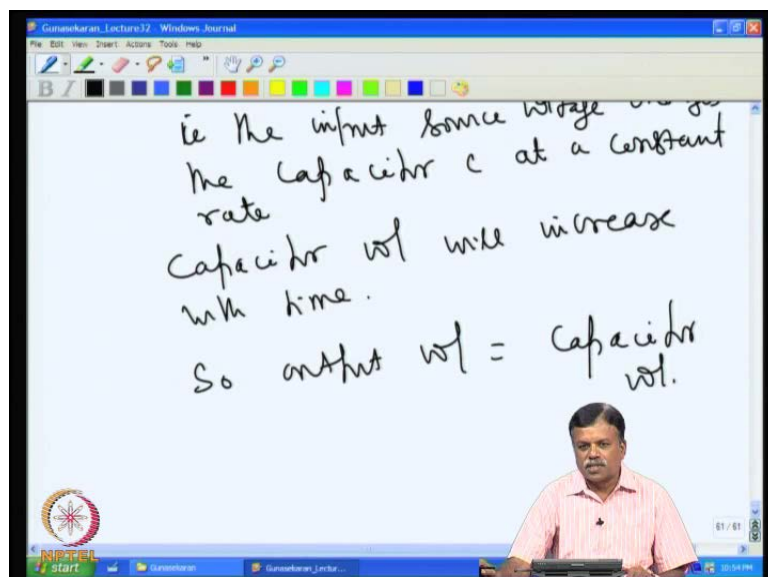 Gunasekaran_Lecture32 - Windows Journal
File Edit View Insert Actions Tools Help
B I
ie the input source voltage charges
the capacitor c at a constant
rate
Capacitor vol will increase
with time.
So output vol = capacitor
vol.
61 / 61
NPTEL
start Gunasekaran Gunasekaran_Lectur... 10:54 PM